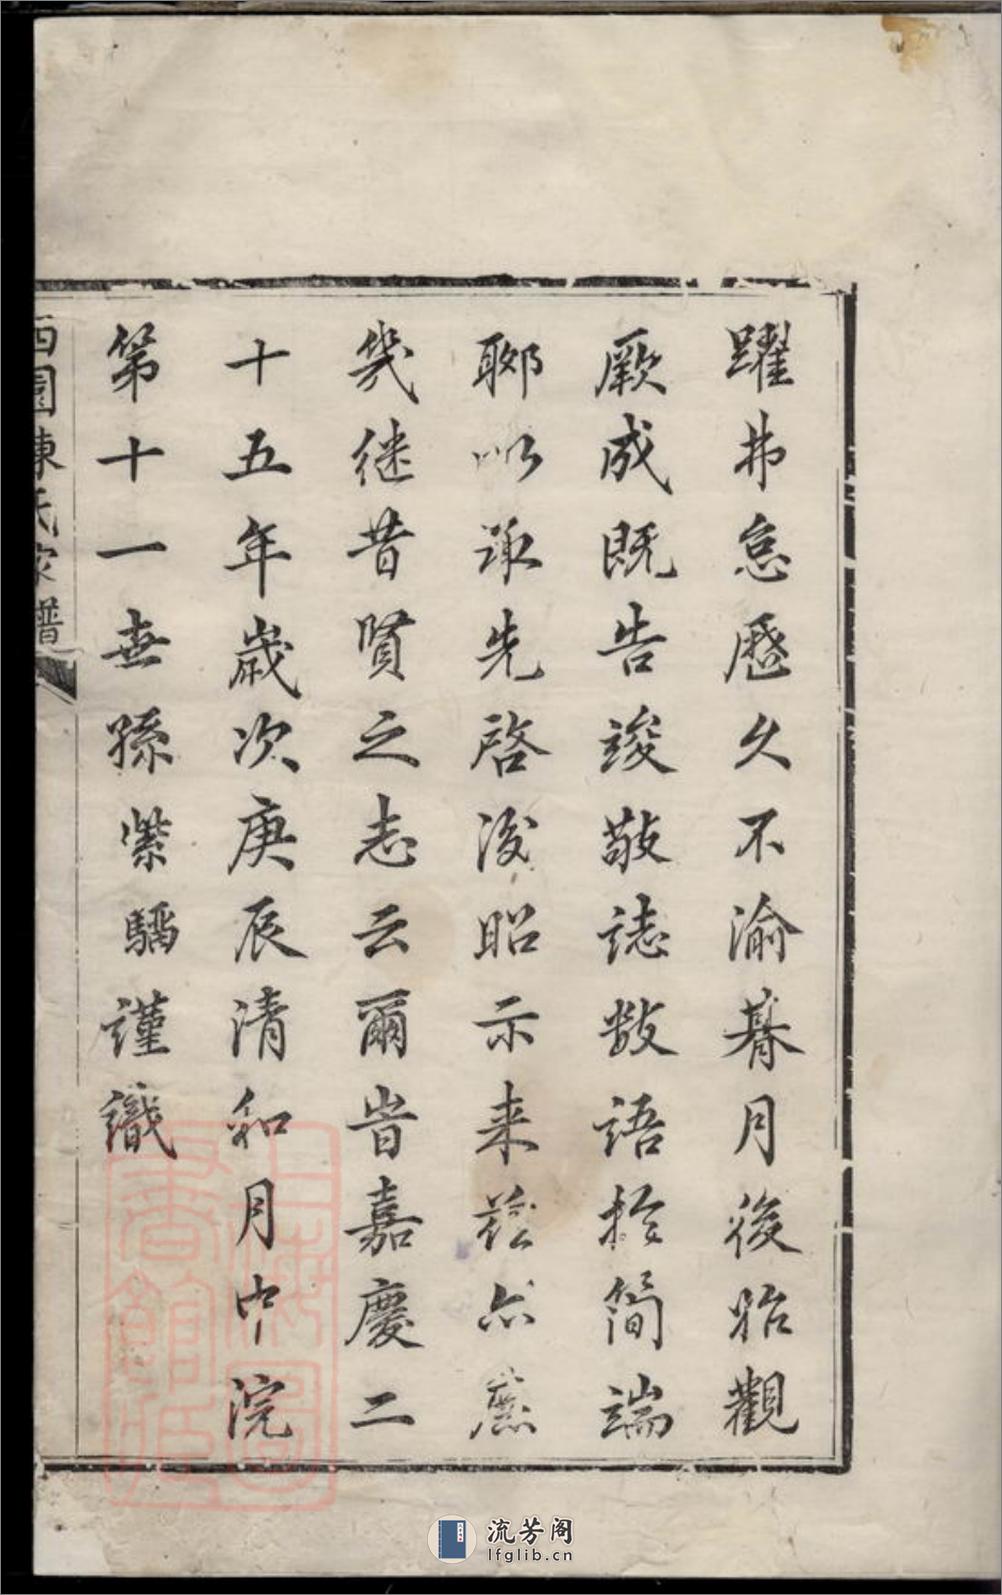 躍弗怠歷久不渝朞月後貽觀
厥成既告竣敬誌數語於簡端
聊以承先啓後昭示来茲亦庶
幾继昔賢之志云爾旹嘉慶二
十五年歲次庚辰清和月中浣
第十一世孫紫驈謹識
西園陳氏家譜
上海圖
書館藏
流芳阁
lfglib.cn